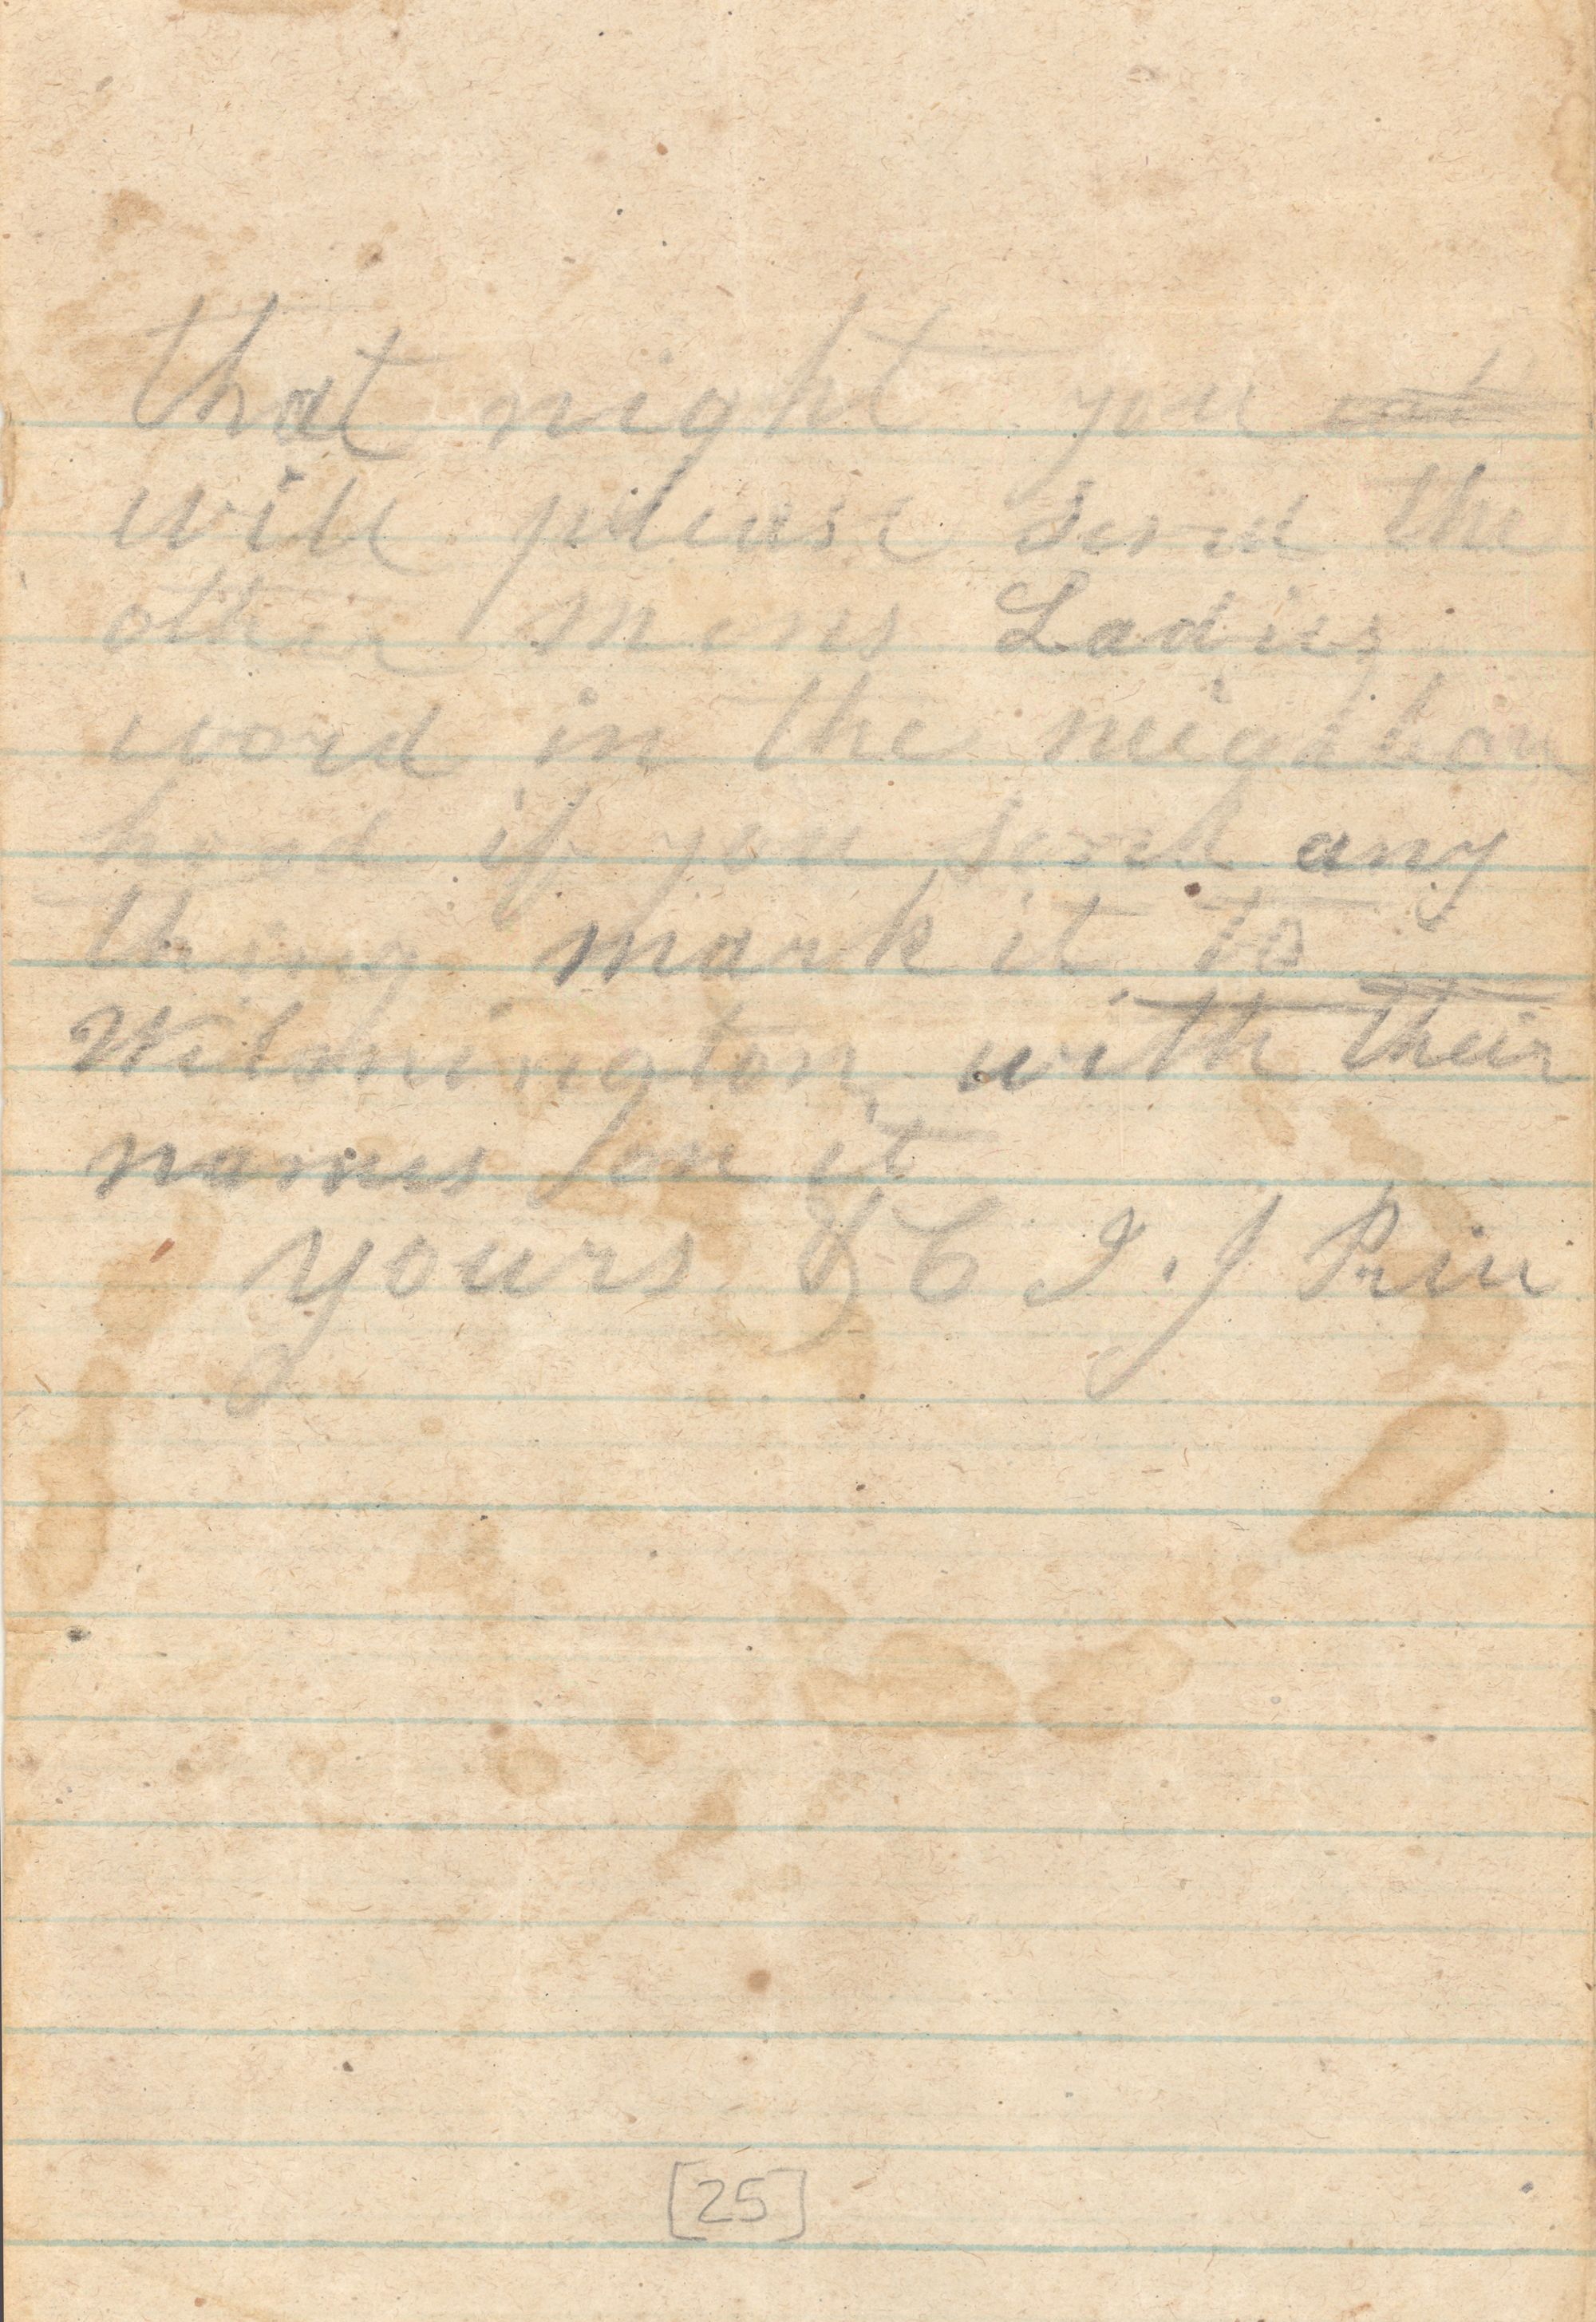 that night you
will please send the
other mens Ladies
word in the neighbor
hood if you send any
thing mark it to
Wilmington with their
names on it
yours &C I. J Prin
[25]